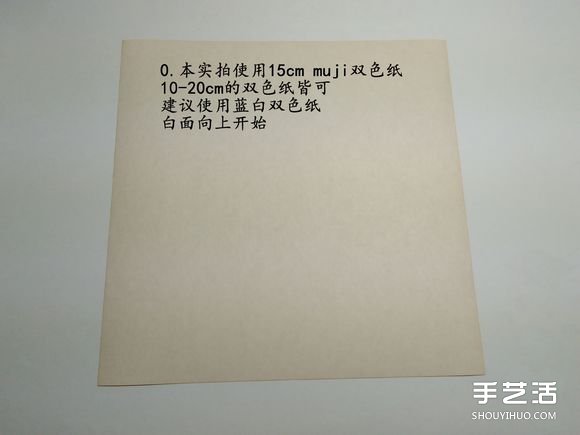 0.本实拍使用15cm muji双色纸
10-20cm的双色纸皆可
建议使用蓝白双色纸
白面向上开始
手艺活
SHOUYIHUO.COM